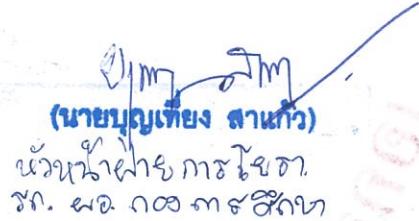 (นายบุญเที่ยง สาแก้ว)
หัวหน้าฝ่ายการโยธา
รก. ผอ. กองการศึกษา